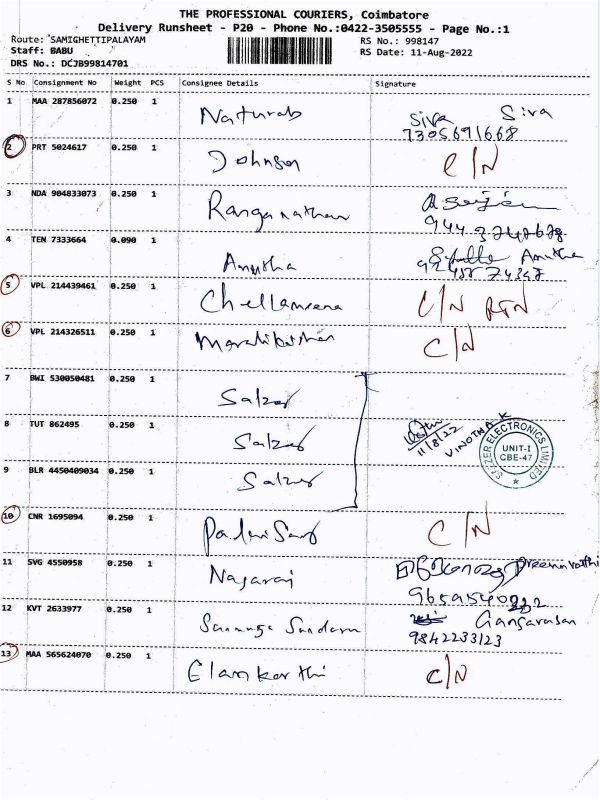 THE PROFESSIONAL COURIERS, Coimbatore
Delivery Runsheet - P20 - Phone No.:0422-3505555 - Page No.:1
Route: SAMIGHETTIPALAYAM
RS No.: 998147
Staff: BABU
RS Date: 11-Aug-2022
DRS No.: DCJB99814701
S No Consignment No Weight PCS Consignee Details Signature
1 MAA 287856072 0.250 1 Naturab Siva Siva
7305691668
2 PRT 5024617 0.250 1 Johnson C/N
3 NDA 904833073 0.250 1 Ranganathan
4 TEN 7333664 0.090 1 Anusha Anitha
5 VPL 214439461 0.250 1 C/N RTN
6 VPL 214326511 0.250 1 C/N
7 BWI 530050481 0.250 1 Salzer
8 TUT 862495 0.250 1 Salzer 11/8/22 VINOTHA K
SALZER ELECTRONICS LIMITED
UNIT-I
CBE-47
9 BLR 4450409034 0.250 1 Salzer
10 CNR 1695094 0.250 1 C/N
11 SVG 4550958 0.250 1 Nagaraj
12 KVT 2633977 0.250 1 Sanmuga Sundaram
9842233123
13 MAA 565624070 0.250 1 Elankarthi C/N